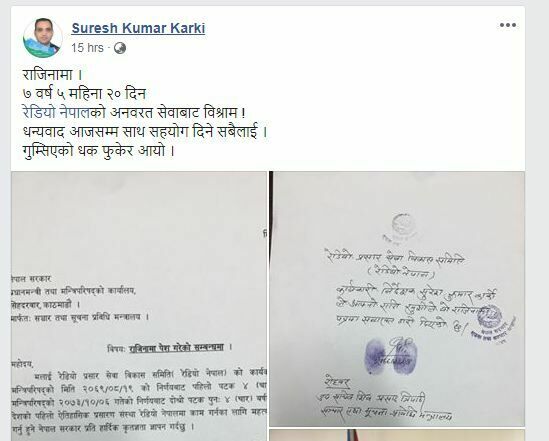 Suresh Kumar Karki
15 hrs ·
राजिनामा ।
७ वर्ष ५ महिना २० दिन
रेडियो नेपालको अनवरत सेवाबाट विश्राम !
धन्यवाद आजसम्म साथ सहयोग दिने सबैलाई ।
गुम्सिएको धक फुकेर आयो ।
नेपाल सरकार
प्रधानमन्त्री तथा मन्त्रिपरिषद्को कार्यालय,
सिंहदरवार, काठमाडौं ।
मार्फतः सञ्चार तथा सूचना प्रविधि मन्त्रालय ।
विषयः राजिनामा पेश गरेको सम्बन्धमा ।
महोदय,
मलाई रेडियो प्रसार सेवा विकास समिति( रेडियो नेपाल) को कार्य
मन्त्रिपरिषद्को मिति २०६९/०८/१९ को निर्णयबाट पहिलो पटक ४ (चा
मन्त्रिपरिषद्को २०७३/१०/०६ गतेको निर्णयबाट दोश्रो पटक पुनः ४ (चार) वर्षक
देशको पहिलो ऐतिहासिक प्रसारण संस्था रेडियो नेपालमा काम गर्नका लागि महत्व
गर्नु हुने नेपाल सरकार प्रति हार्दिक कृतज्ञता ज्ञापन गर्दछु ।
रेडियो प्रसार सेवा विकास समिति
(रेडियो नेपाल)
कार्यकारी निर्देशक सुरेश कुमार कार्की
ले आफ्नो राजि खुशीले यो राजिनामा
पत्रमा सनाखत गरी दिएको छ ।
रोहवर